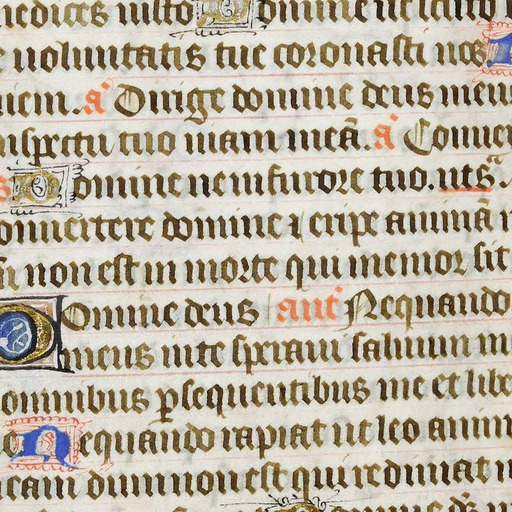 nedices iusto Domine ut scuto
e uoluntatis tue coronasti nos
iem. a͛ Dirige domine deus meus
nspectu tuo uiam meā. a͛ Conuer
Domine ne in furore tuo. ut s͛
onuertere domine ⁊ eripe animā m
si non est in morte qui memor sit
Domine deus ant͛ Nequando
meus in te speraui saluum m
omnibus ꝑsequentibus me et libe
Nequando rapiat ut leo anim
eam dum non est qui redimat n